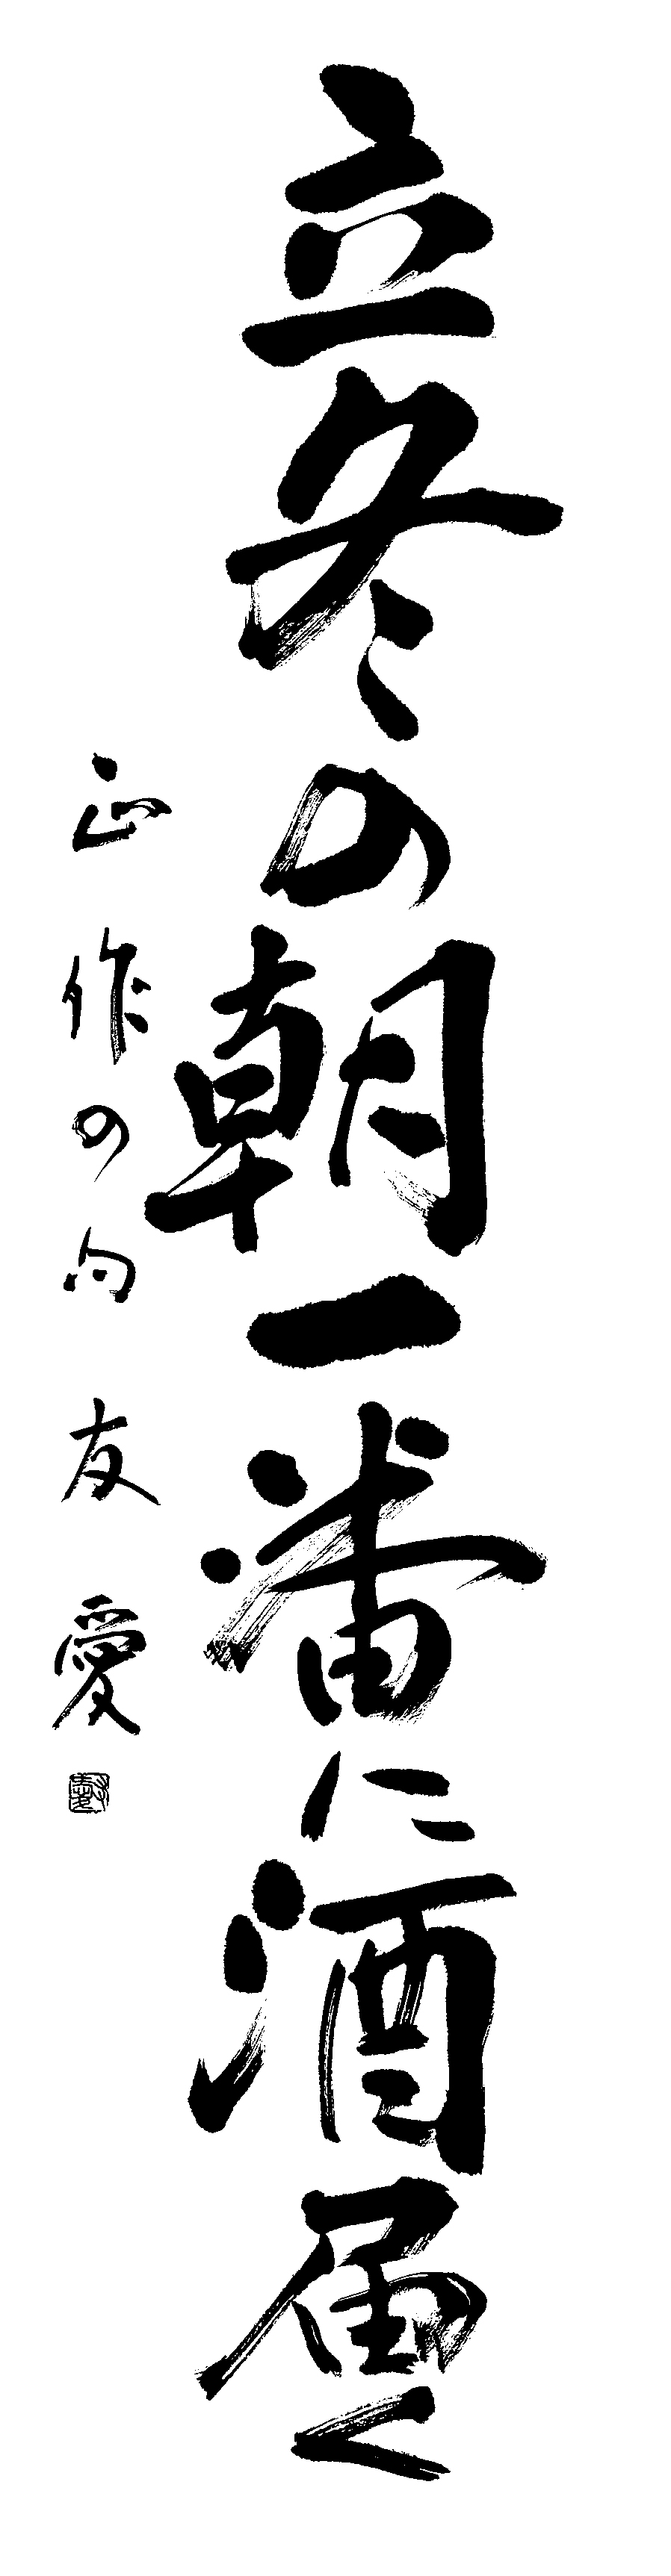 立冬の朝一番に酒届く
正作の句 友愛